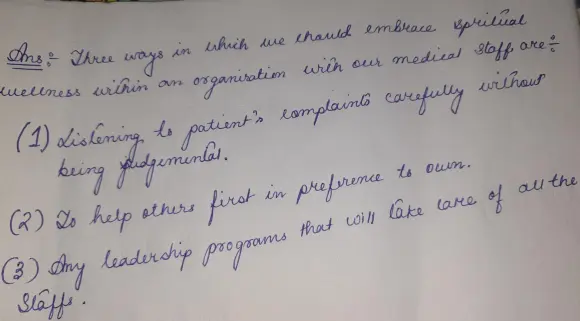 Ans:- Three ways in which we should embrace spritual
wellness within an organisation with our medical staff are:-
(1) Listening to patient's complaints carefully without
being judgemental.
(2) To help others first in preference to own.
(3) Any leadership programs that will take care of all the
staffs.